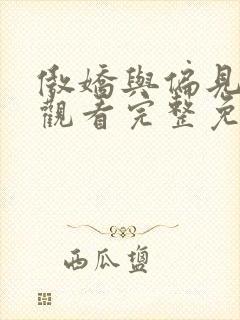 傲嬌與偏見
觀看完整免
西瓜鹽